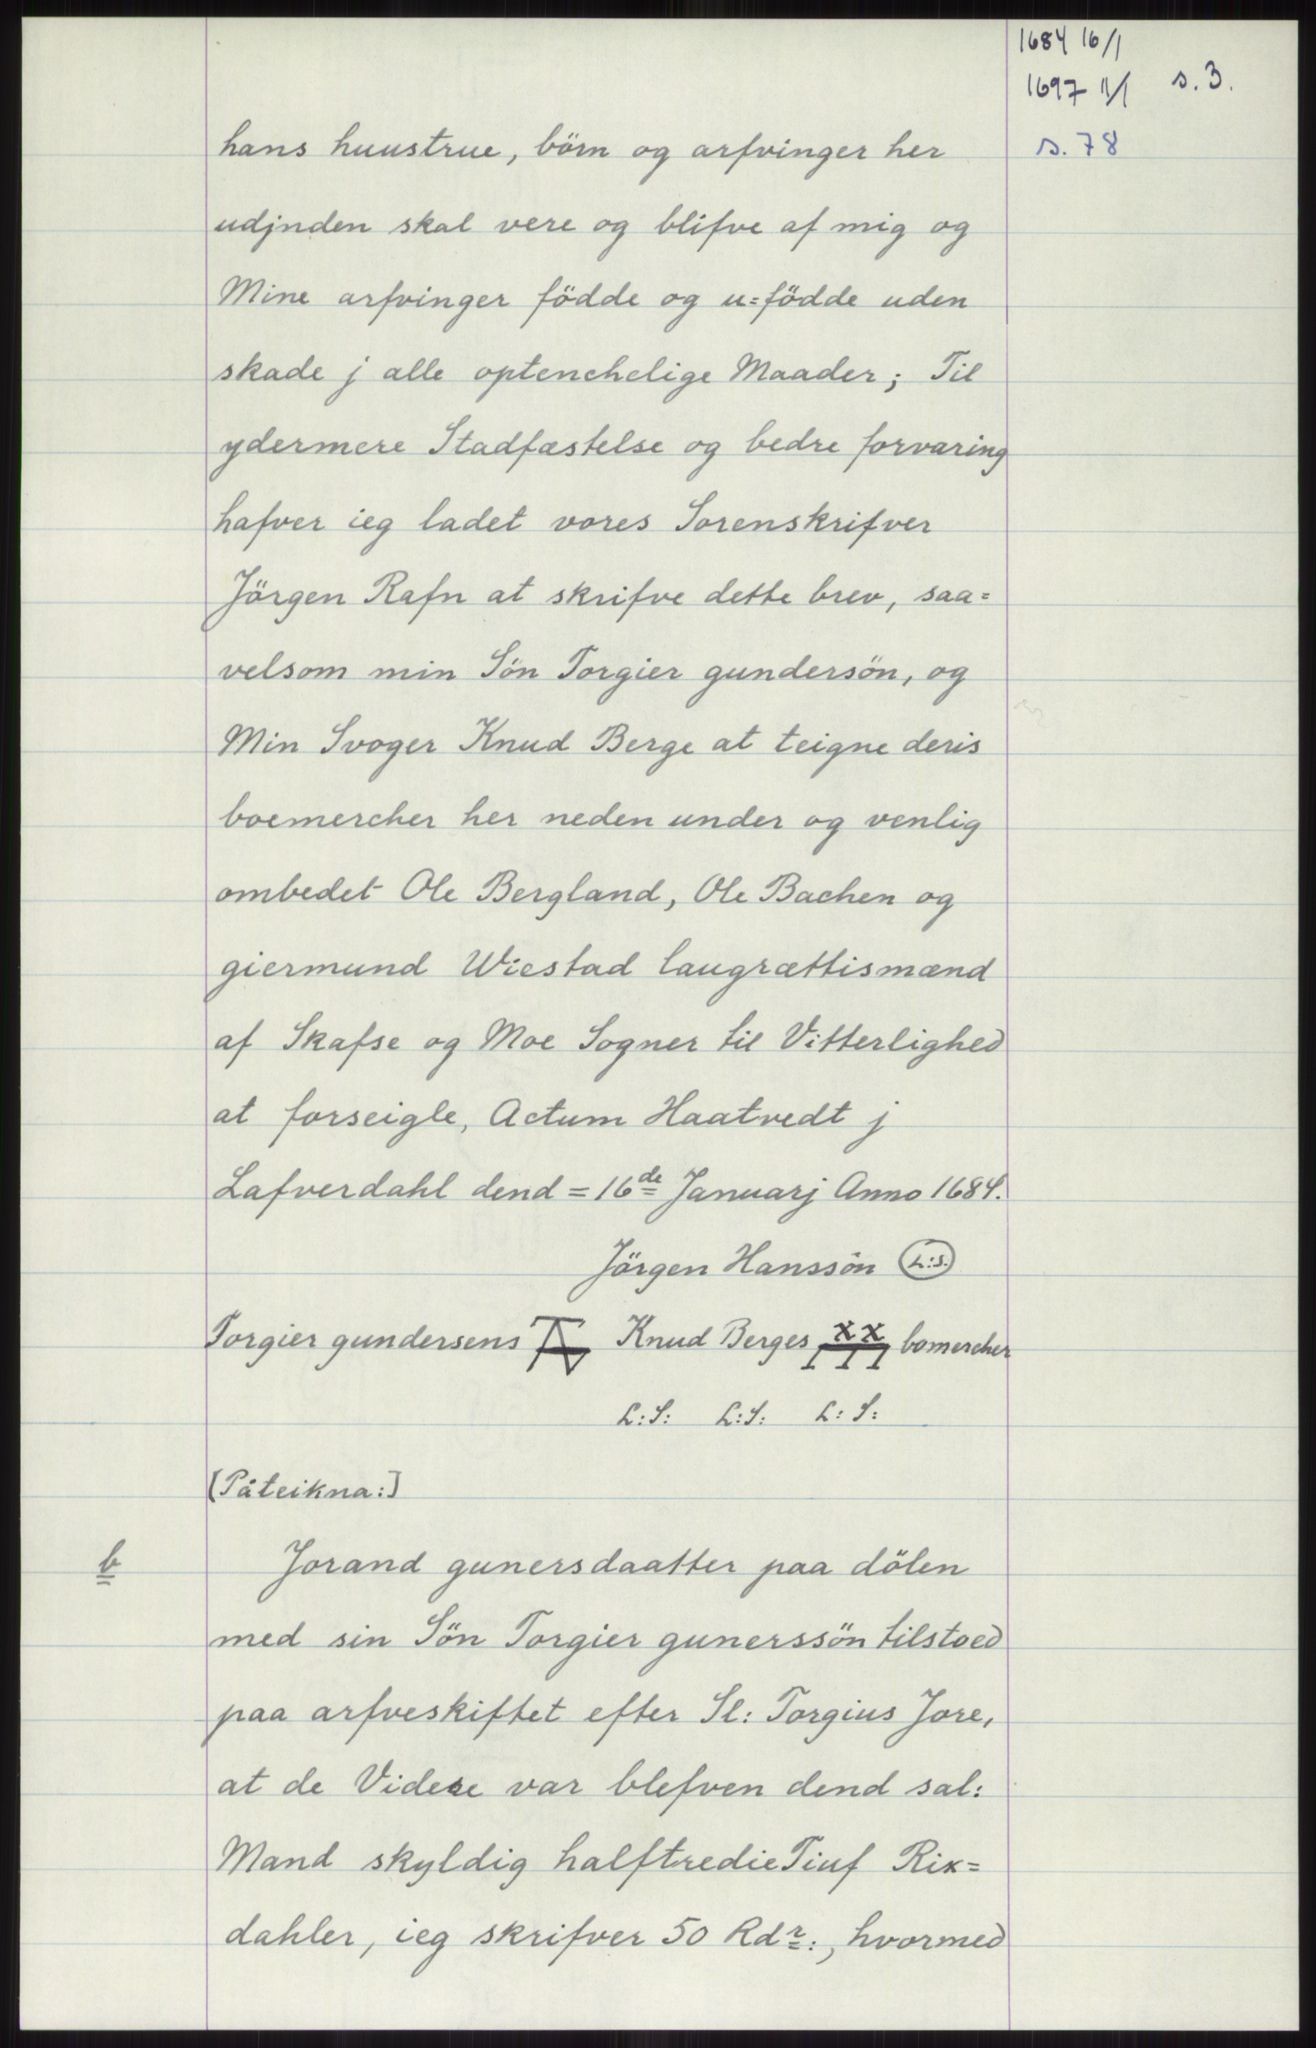 1684 16/1
1697 11/1 s. 3.
s. 78
hans huustrue, börn og arfvinger her
udjnden skal vere og blifve af mig og
Mine arfvinger födde og u=födde uden
skade j alle optenchelige Maader; Til
ydermere Stadfæstelse og bedre forvaring
hafver ieg ladet vores Sorenskrifver
Jörgen Rafn at skrifve dette brev, saa=
velsom min Sön Torgier gundersön, og
Min Svoger Knud Berge at teigne deris
boemercher her neden under og venlig
ombedet Ole Bergland, Ole Bachen og
giermund Wiestad laugrættismænd
af Skafse og Moe Sogner til Vitterlighed
at forseigle, Actum Haatvedt j
Lafverdahl dend = 16de Januarj Anno 1684.
Jörgen Hanssön L:S.
Torgier gundersens Knud Berges bomercher
L:S: L:S: L:S:
[Påteikna:]
b Jorand gunersdaatter paa dölen
med sin Sön Torgier gunerssön tilstoed
paa arfveskiftet efter Sl: Torgius Jore,
at de Videre var blefven dend sal:
Mand skyldig halftredie Tiuf Rix=
dahler, ieg skrifver 50 Rdr:, hvormed